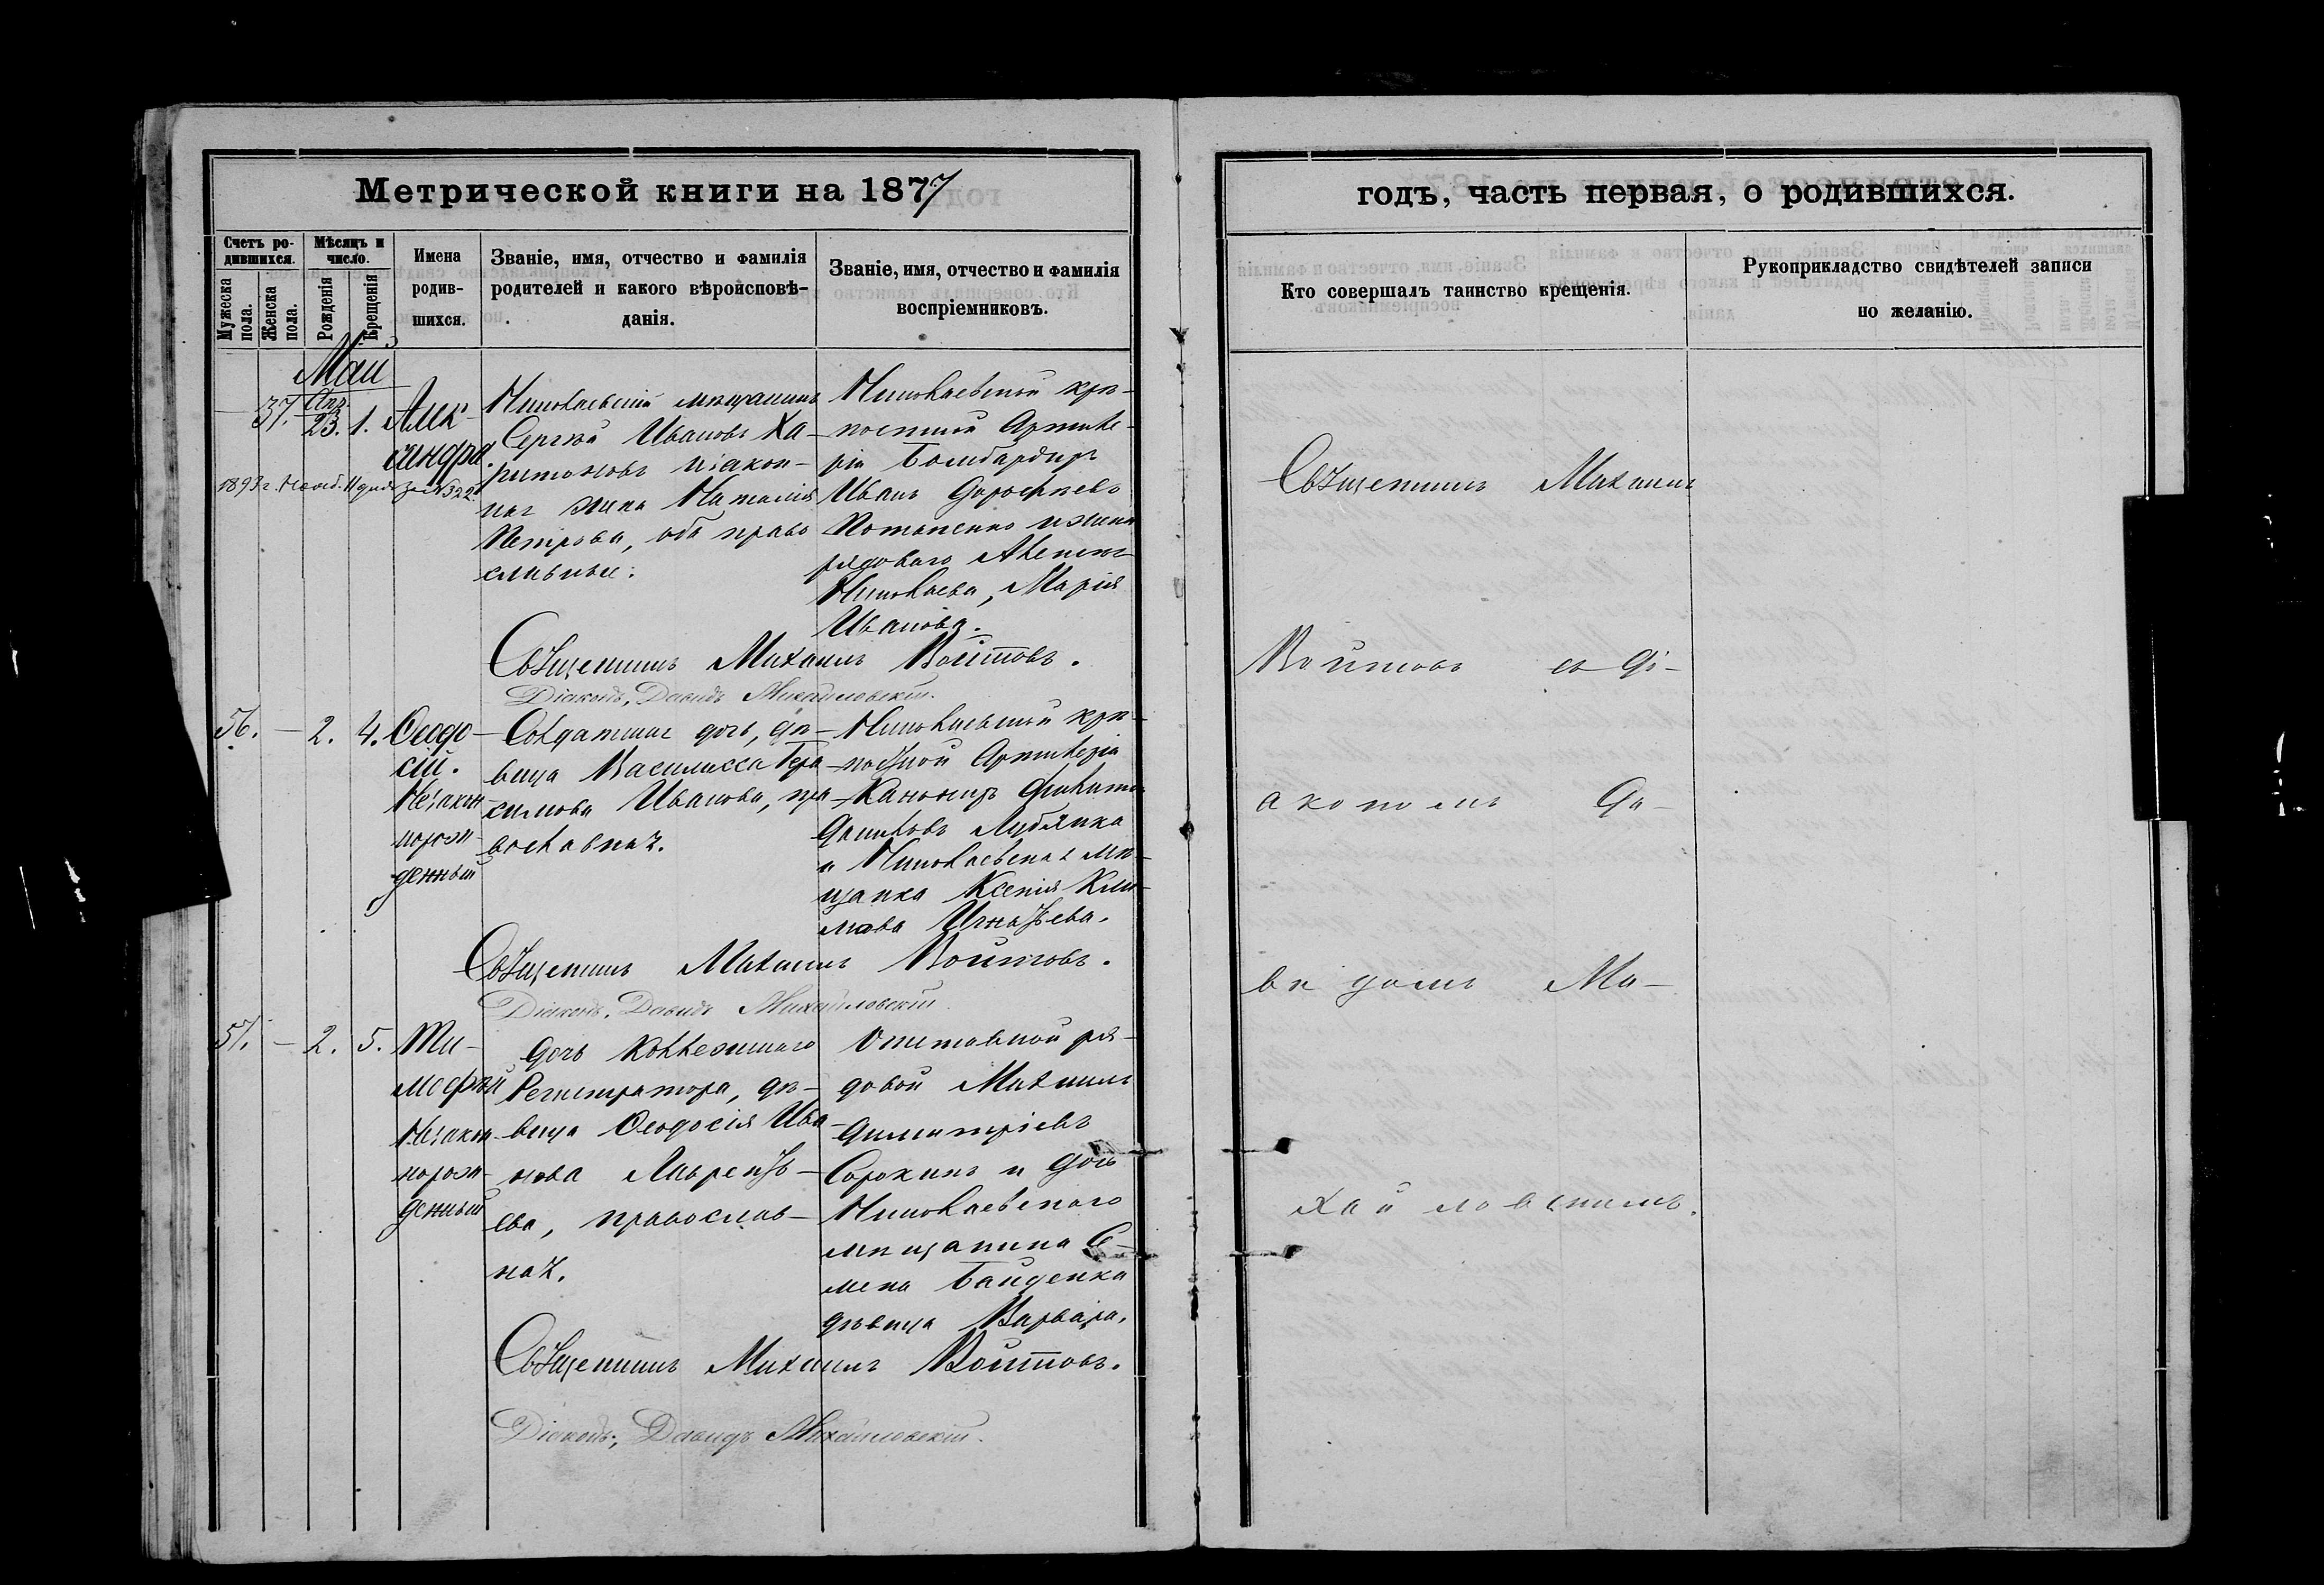 Метрической книги на 1877
годъ, часть первая, о родившихся.
Счетъ ро-
дившихся.
Мужеска пола.
Женска пола.
Мѣсяцъ и
число.
Рожденія
Крещенія
Имена
родив-
шихся.
Званіе, имя, отчество и фамилія
родителей и какого вѣроисповѣ-
данія.
Званіе, имя, отчество и фамилія
воспріемниковъ.
Кто совершалъ таинство крещенія.
Рукоприкладство свидѣтелей записи
по желанію.
Маи
— 37. Апр. 23. 1.
Алек-
сандра.
1893 г. Нояб. 11 дня за №322.
Николаевскій мѣщанинъ
Сергѣй Ивановъ Ха-
ритоновъ и закон-
ная жена Наталія
Петрова, оба право
славные.
Николаевской крѣ-
постной Артиле-
ріи Бомбардиръ
Иванъ Дорофѣевъ
Потапенко и жена
рядоваго
Николаева, Марія
Иванова.
Священникъ Михаилъ Войтовъ.
Діаконъ, Давидъ Михайловскій.
56. — 2. 4.
Ѳеодо-
сій.
Незакон-
норож-
денный
Солдатская дочь, дѣ-
вица Василисса Гера-
симова Иванова, пра-
вославная.
Николаевской крѣ-
постной Артилеріи
Канониръ Филипъ
Даниловъ Лубянка
и Николаевская мѣ-
щанка Ксенія Кли-
мова Игнатьева.
Священникъ Михаилъ Войтовъ.
Діаконъ, Давидъ Михайловскій
57. — 2. 5.
Ти-
мофѣй
Незакон-
норож-
денный
Дочь Коллежскаго
Регистратора, дѣ-
вица Ѳеодосія Ива-
нова Лаврентъ-
ева, православ-
ная.
Отставной ря-
довой Михаилъ
Димитріевъ
Сорокинъ и дочь
Николаевскаго
мѣщанина Се-
мена Байденка
дѣвица Варвара.
Священникъ Михаилъ Войтовъ.
Діаконъ, Давидъ Михайловскій.
Священникъ Михаилъ
Войтовъ съ Ді-
акономъ Да-
видомъ Ми-
хайловскимъ.